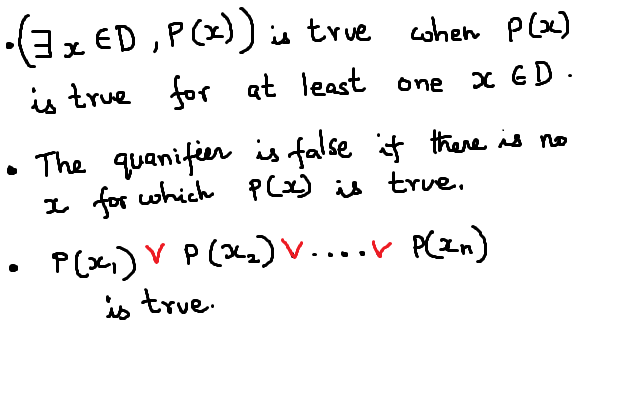 • (∃ x ∈ D , P(x)) is true when P(x)
is true for at least one x ∈ D .
• The quanifier is false if there is no
x for which P(x) is true.
• P(x₁) ∨ P(x₂) ∨ .... ∨ P(xn)
is true.